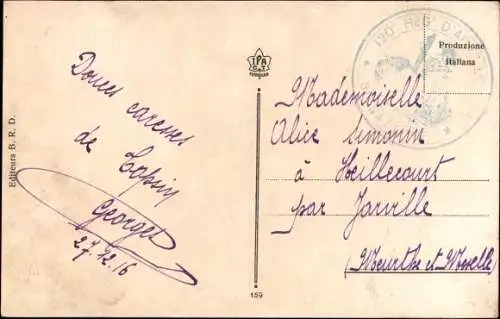 Editeurs B. R. D.
Douces caresses
de Lapin
Georges
27.12.16
IPA
159
120e REG D'AR
Produzione
Italiana
Mademoiselle
Alice Simonin
à Heillecourt
par Jarville
(Meurthe et Moselle)